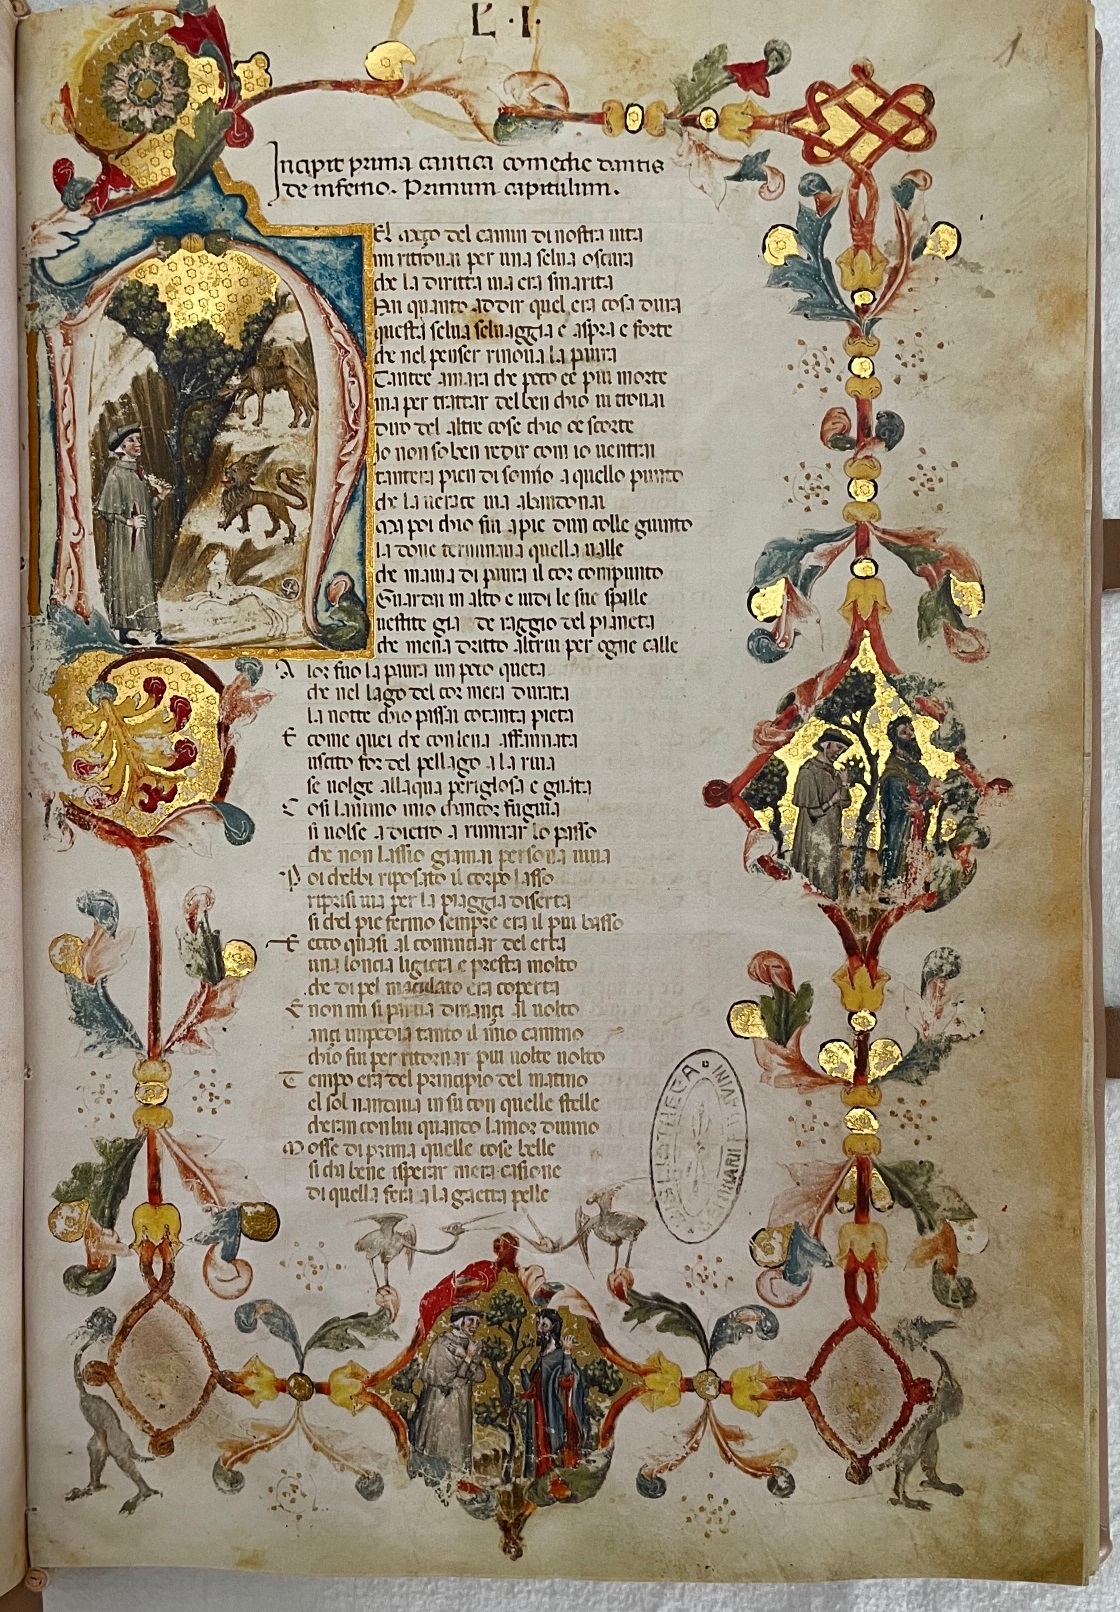 L · I ·
1
Incipit prima cantica comedie dantis
de inferno. Primum capitulum.
El meço del camin di nostra uita
mi ritrouai per una selua oscura
che la diritta uia era smarita
Ay quanto addir quel era cosa dura
questa selua seluaggia e aspra e forte
che nel penser rinoua la paura
Tante amara che poco e piu morte
ma per trattar del ben chio ui trouai
diro del altre cose chio ce scorte
Io non so ben redir com io uentrai
tantera pien di sonno a quello punto
che la uerace uia abandonai
Ma poi chio fui apie dun colle giunto
la doue terminaua quella ualle
che mauia di paura il cor compunto
Guardai in alto e uidi le sue spalle
uestite gia de raggio del pianeta
che mena dritto altrui per ogne calle
Alor fuo la paura un poco queta
che nel lago del cor mera durata
la notte chio passai cotanta pieta
E come quei che con lena affannata
uscito for del pellago a la riua
se uolge allaqua perigliosa e guata
Cosi lanimo mio chancor fugiua
si uolse a dietro a rimirar lo passo
che non lassio giamai persona uiua
Poi chebbi riposato il corpo lasso
ripresi uia per la piaggia diserta
si chel pie fermo sempre era il piu basso
Et ecco quasi al cominciar del erta
una loncia ligiera e presta molto
che di pel maculato era coperta
E non mi si partia dinanci al uolto
anci impedia tanto il mio camino
chio fui per ritornar piu uolte uolto
Tempo era del principio del matino
el sol montaua in su con quelle stelle
cheran con lui quando lamor diuino
Mosse di prima quelle cose belle
si cha bene isperar mera casione
di quella fera a la gaetta pelle
BIBLIOTHECA
SEMINARII